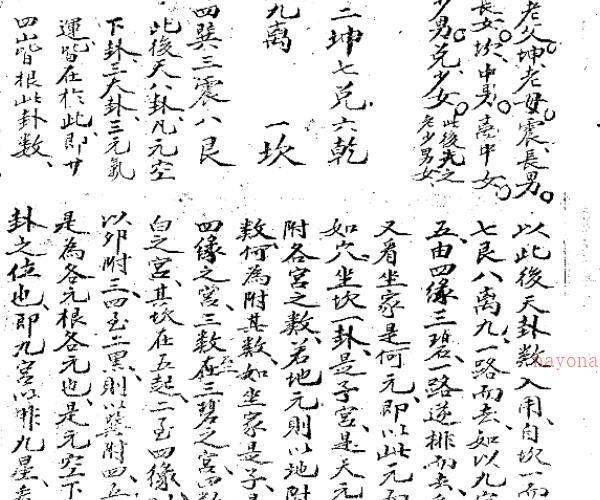 老父坤、老母震、長男
長女坎、中男、离中女
少男兑、少女
此後先之
老少男女
二坤七兑六乾
九离 一坎
四巽三震八艮
此後天八卦、凡元空
下卦三大卦三元氣
運皆在於此、即廿
四山皆根此卦数、
以此後天卦数入用、自坎一而
七艮八离九一路而去、如以九
五由四緑三碧一路逆排而去
又看坐家是何元、即以此元而
如穴坐坎一卦是子宫、是天元
附各宫之数、若地元則以地附
数、何為附其数、如坐家是子
四緑之宫、三数在三碧之宫四数
白之宫、其坎在五起、二至四緑
以卯附三四至二黑、則以巽附四五
是為各元根各元也、是元空下
卦之位也、即九宫以非九星
nayona